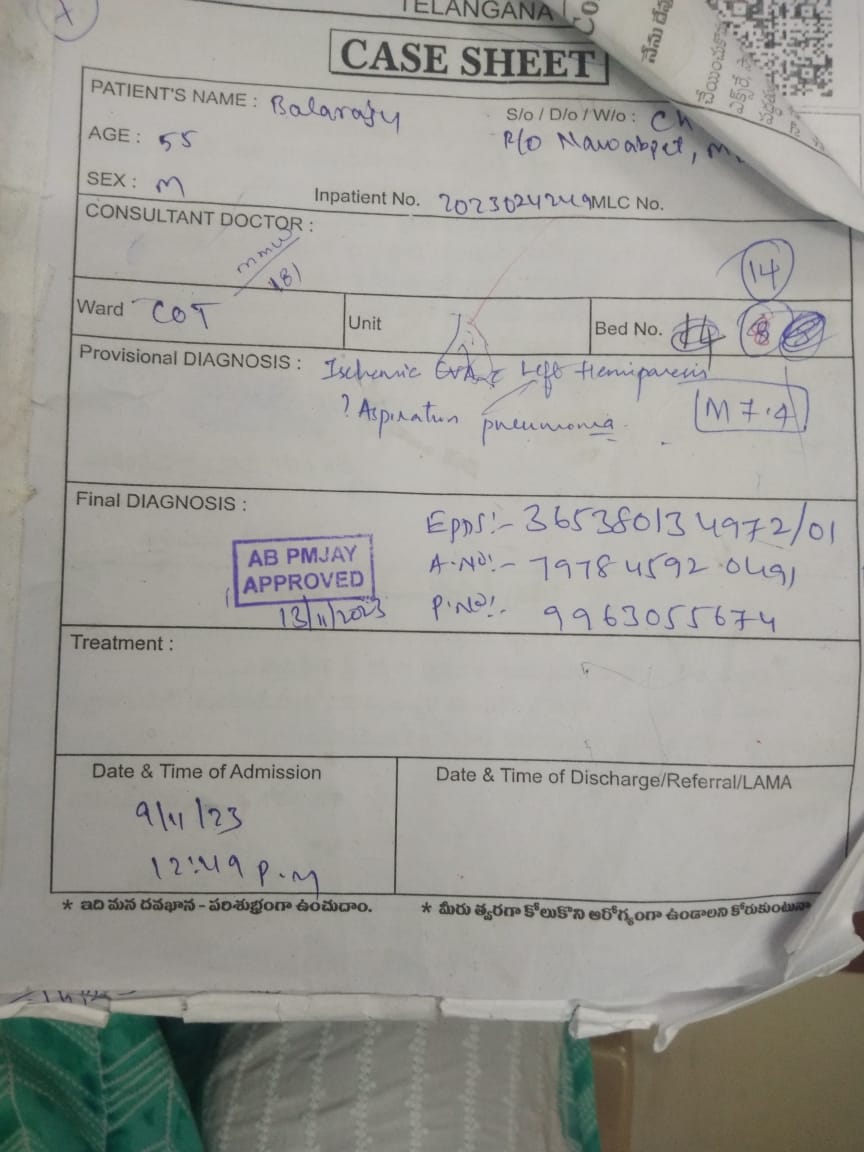 TELANGANA
CASE SHEET
PATIENT'S NAME : Balaraju
S/o / D/o / W/o : Ch
AGE : 55
R/o Nawabpet,
SEX : M
Inpatient No. 2023024249 MLC No.
CONSULTANT DOCTOR :
14
Ward COT
Unit
Bed No. 14 8
Provisional DIAGNOSIS : Ischemic CVA Left Hemiparesis
? Aspiration pneumonia
M 7.4
Final DIAGNOSIS :
365380134972/01
AB PMJAY
APPROVED
13/11/2023
A.NO:- 7978 4592 0491
P.NO:- 9963055674
Treatment :
Date & Time of Admission
Date & Time of Discharge/Referral/LAMA
9/11/23
12:49 P.M
* ఇది మన దవఖాన - పరిశుభ్రంగా ఉంచుదాం.
* మీరు త్వరగా కోలుకొని ఆరోగ్యంగా ఉండాలని కోరుకుంటూ